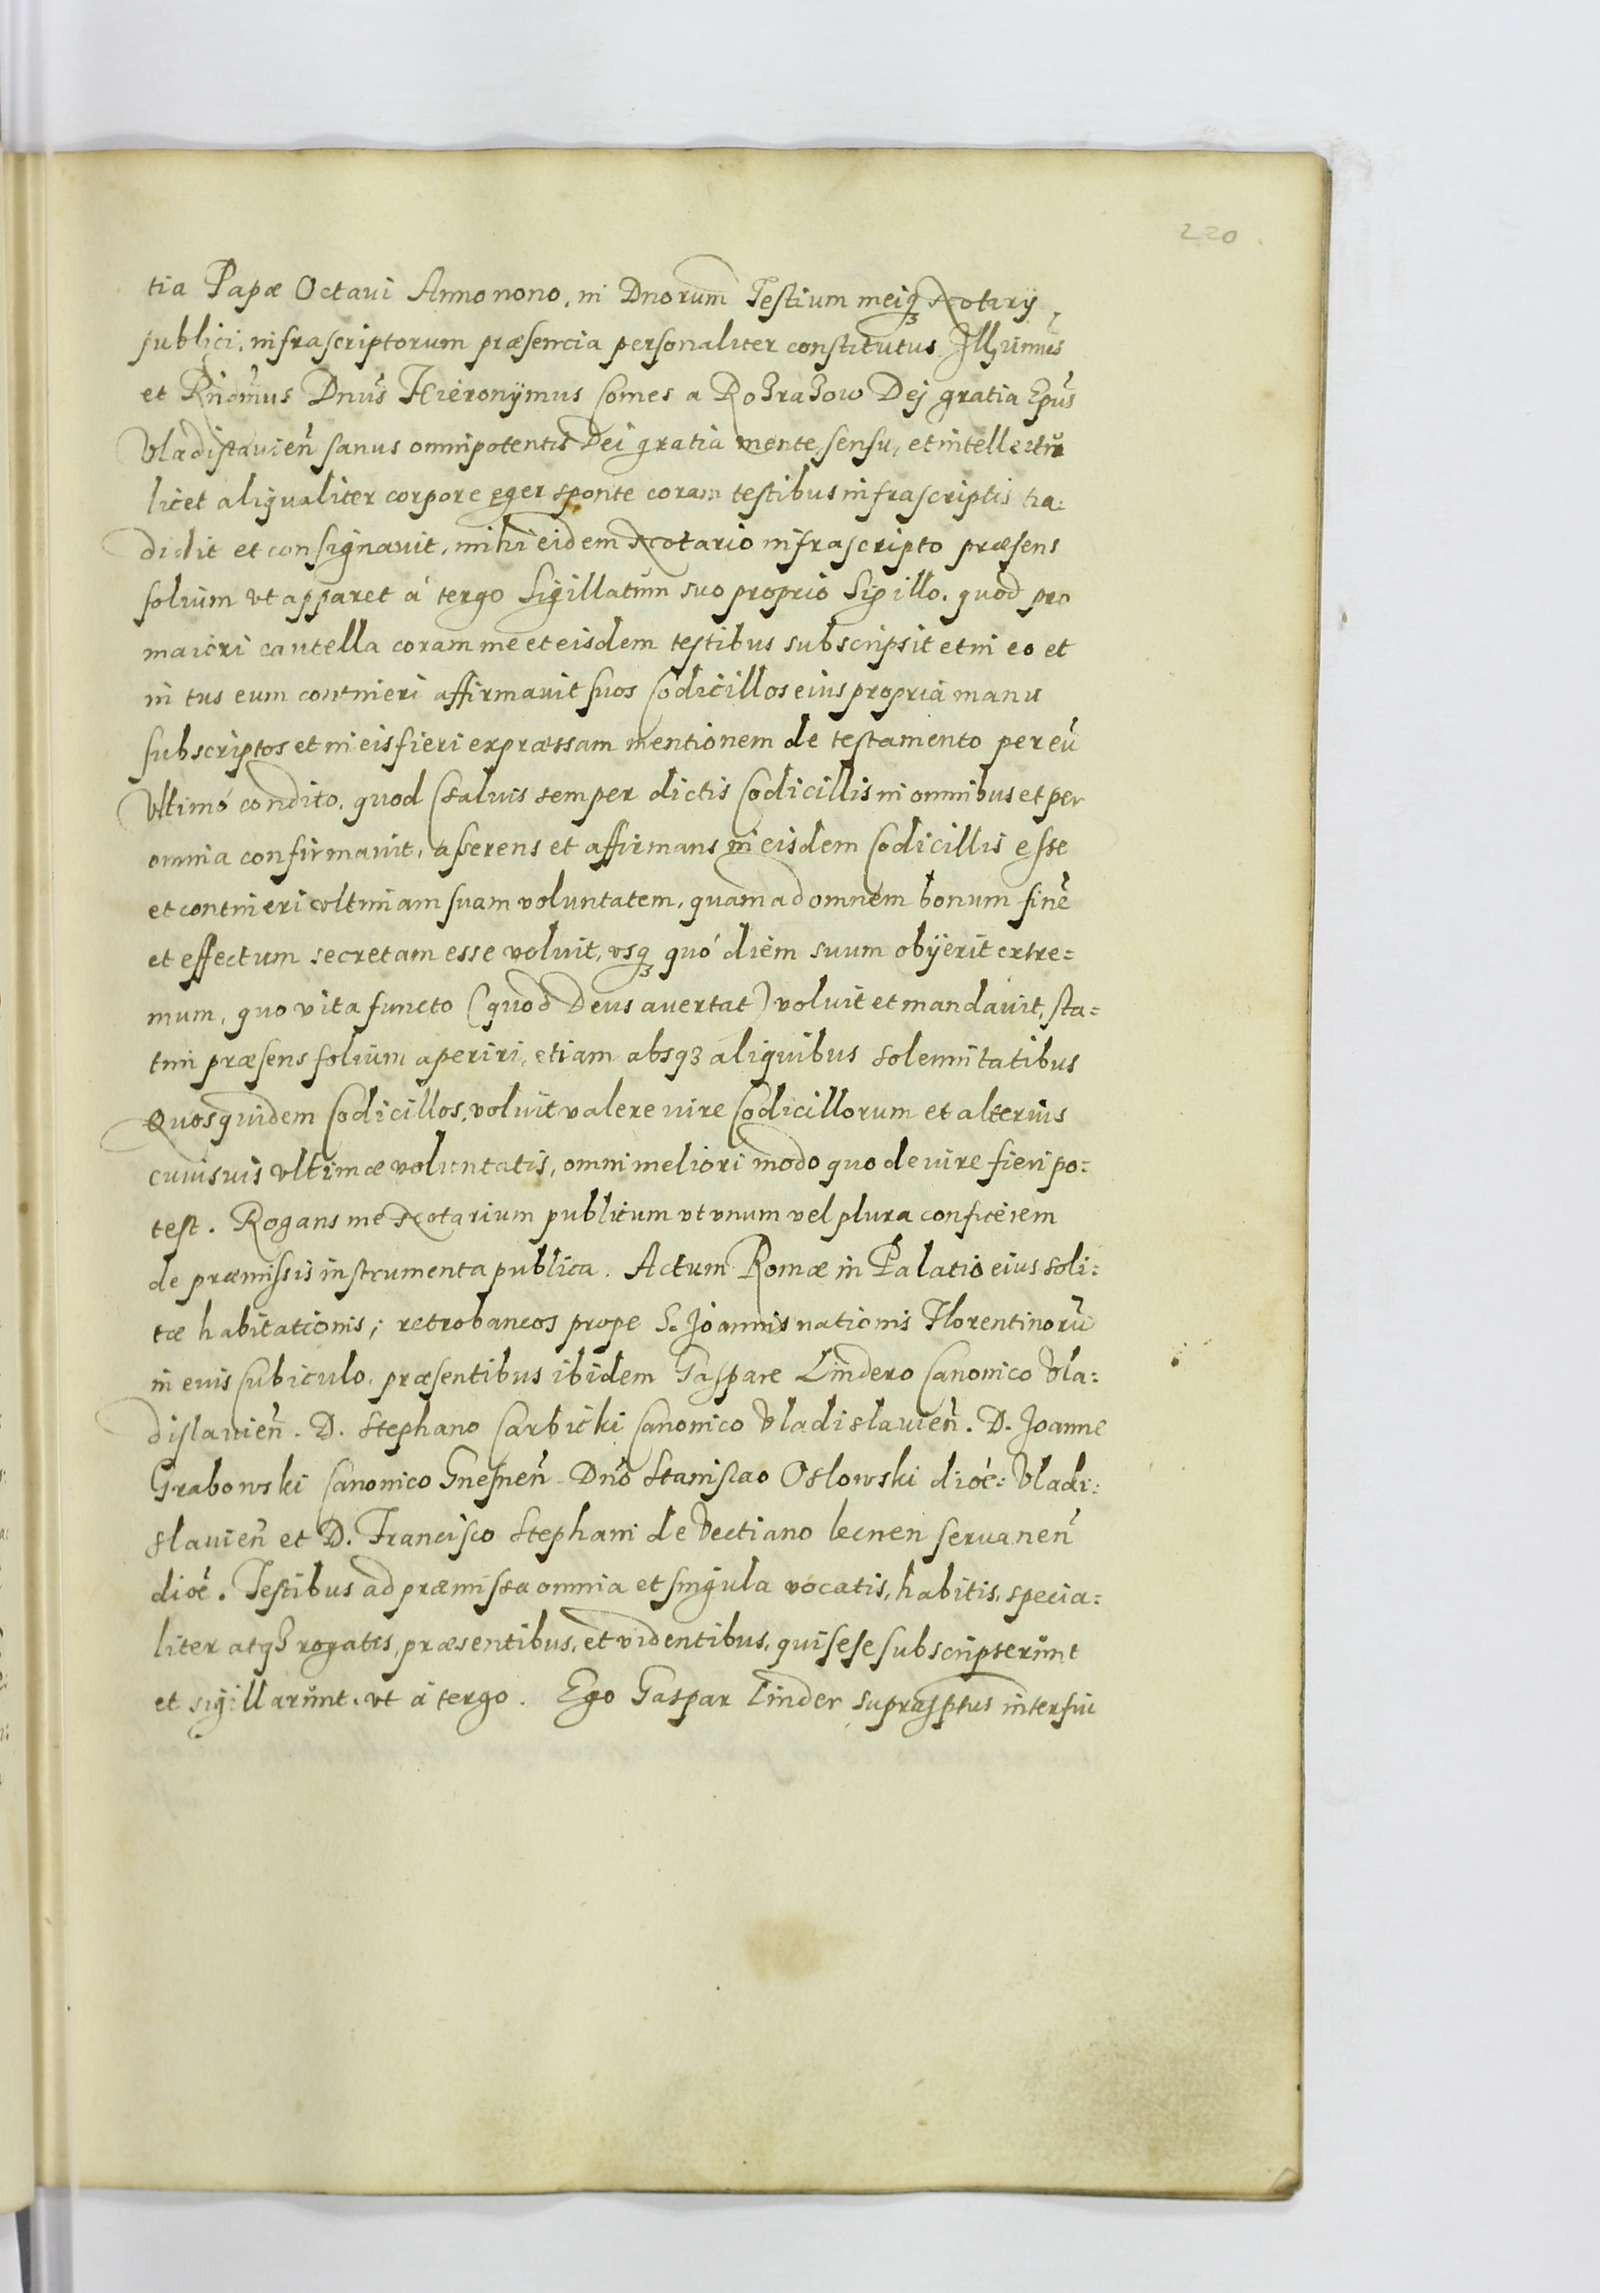 220
tia Papæ Octaui Anno nono, in Dnorum Testium meiq3 Notarij
publici, infrascriptorum præsencia personaliter constitutus Illusmus
et Rndmus Dnus Hieronÿmus Comes a Rozrazow Dej gratia Epus
Vladislauien sanus omnipotentis Dei gratia mente, sensu, et intellectu
licet aliqualiter corpore eger sponte coram testibus infrascriptis tra:
didit et consignauit, mihi eidem Notario infrascripto præsens
folium vt apparet à tergo Sigillatum suo proprio Sigillo, quod pro
maiori cautella coram me et eisdem testibus subscripsit et in eo et
in tus eum contineri affirmauit suos Codicillos eius propria manu
subscriptos et in eis fieri expræssam mentionem de testamento per eu
Vltimó condito, quod (saluis semper dictis Codicillis in omnibus et per
omnia confirmauit, asserens et affirmans in eisdem Codicillis esse
et contineri vltimam suam voluntatem, quam ad omnem bonum fine
et effectum secretam esse voluit, vsq3 quó diem suum obÿerit extre=
mum, quo vita functo (quod Deus auertat) voluit et mandauit, sta=
tim præsens folium aperiri, etiam absq3 aliquibus solemnitatibus
Quosquidem Codicillos, voluit valere iure Codicillorum et alterius
cuiusuis vltimæ voluntatis, omni meliori modo quo de iure fieri po:
test. Rogans me Notarium publicum vt vnum vel plura conficerem
de præmissis instrumenta publica. Actum Romæ in Palatio eius soli:
tæ habitationis; retrobancos prope S. Joannis nationis Florentinoru
in euis Cubiculo, præsentibus ibidem Gaspare Lindero Canonico Vla:
dislauien. D. Stephano Sarbicki Canonico Vladislauien. D. Joanne
Grabowski Canonico Gnesnen Dno Stanislao Oslowski dioe: Vladi:
slauien et D. Francisco Stephani de Vectiano lecnen seruanen
dioe. Testibus ad præmissa omnia et singula vocatis, habitis, specia:
liter atq3 rogatis, præsentibus, et videntibus, qui sese subscripserunt
et sigillarunt, vt à tergo. Ego Gaspar Linder suprasptus interfui